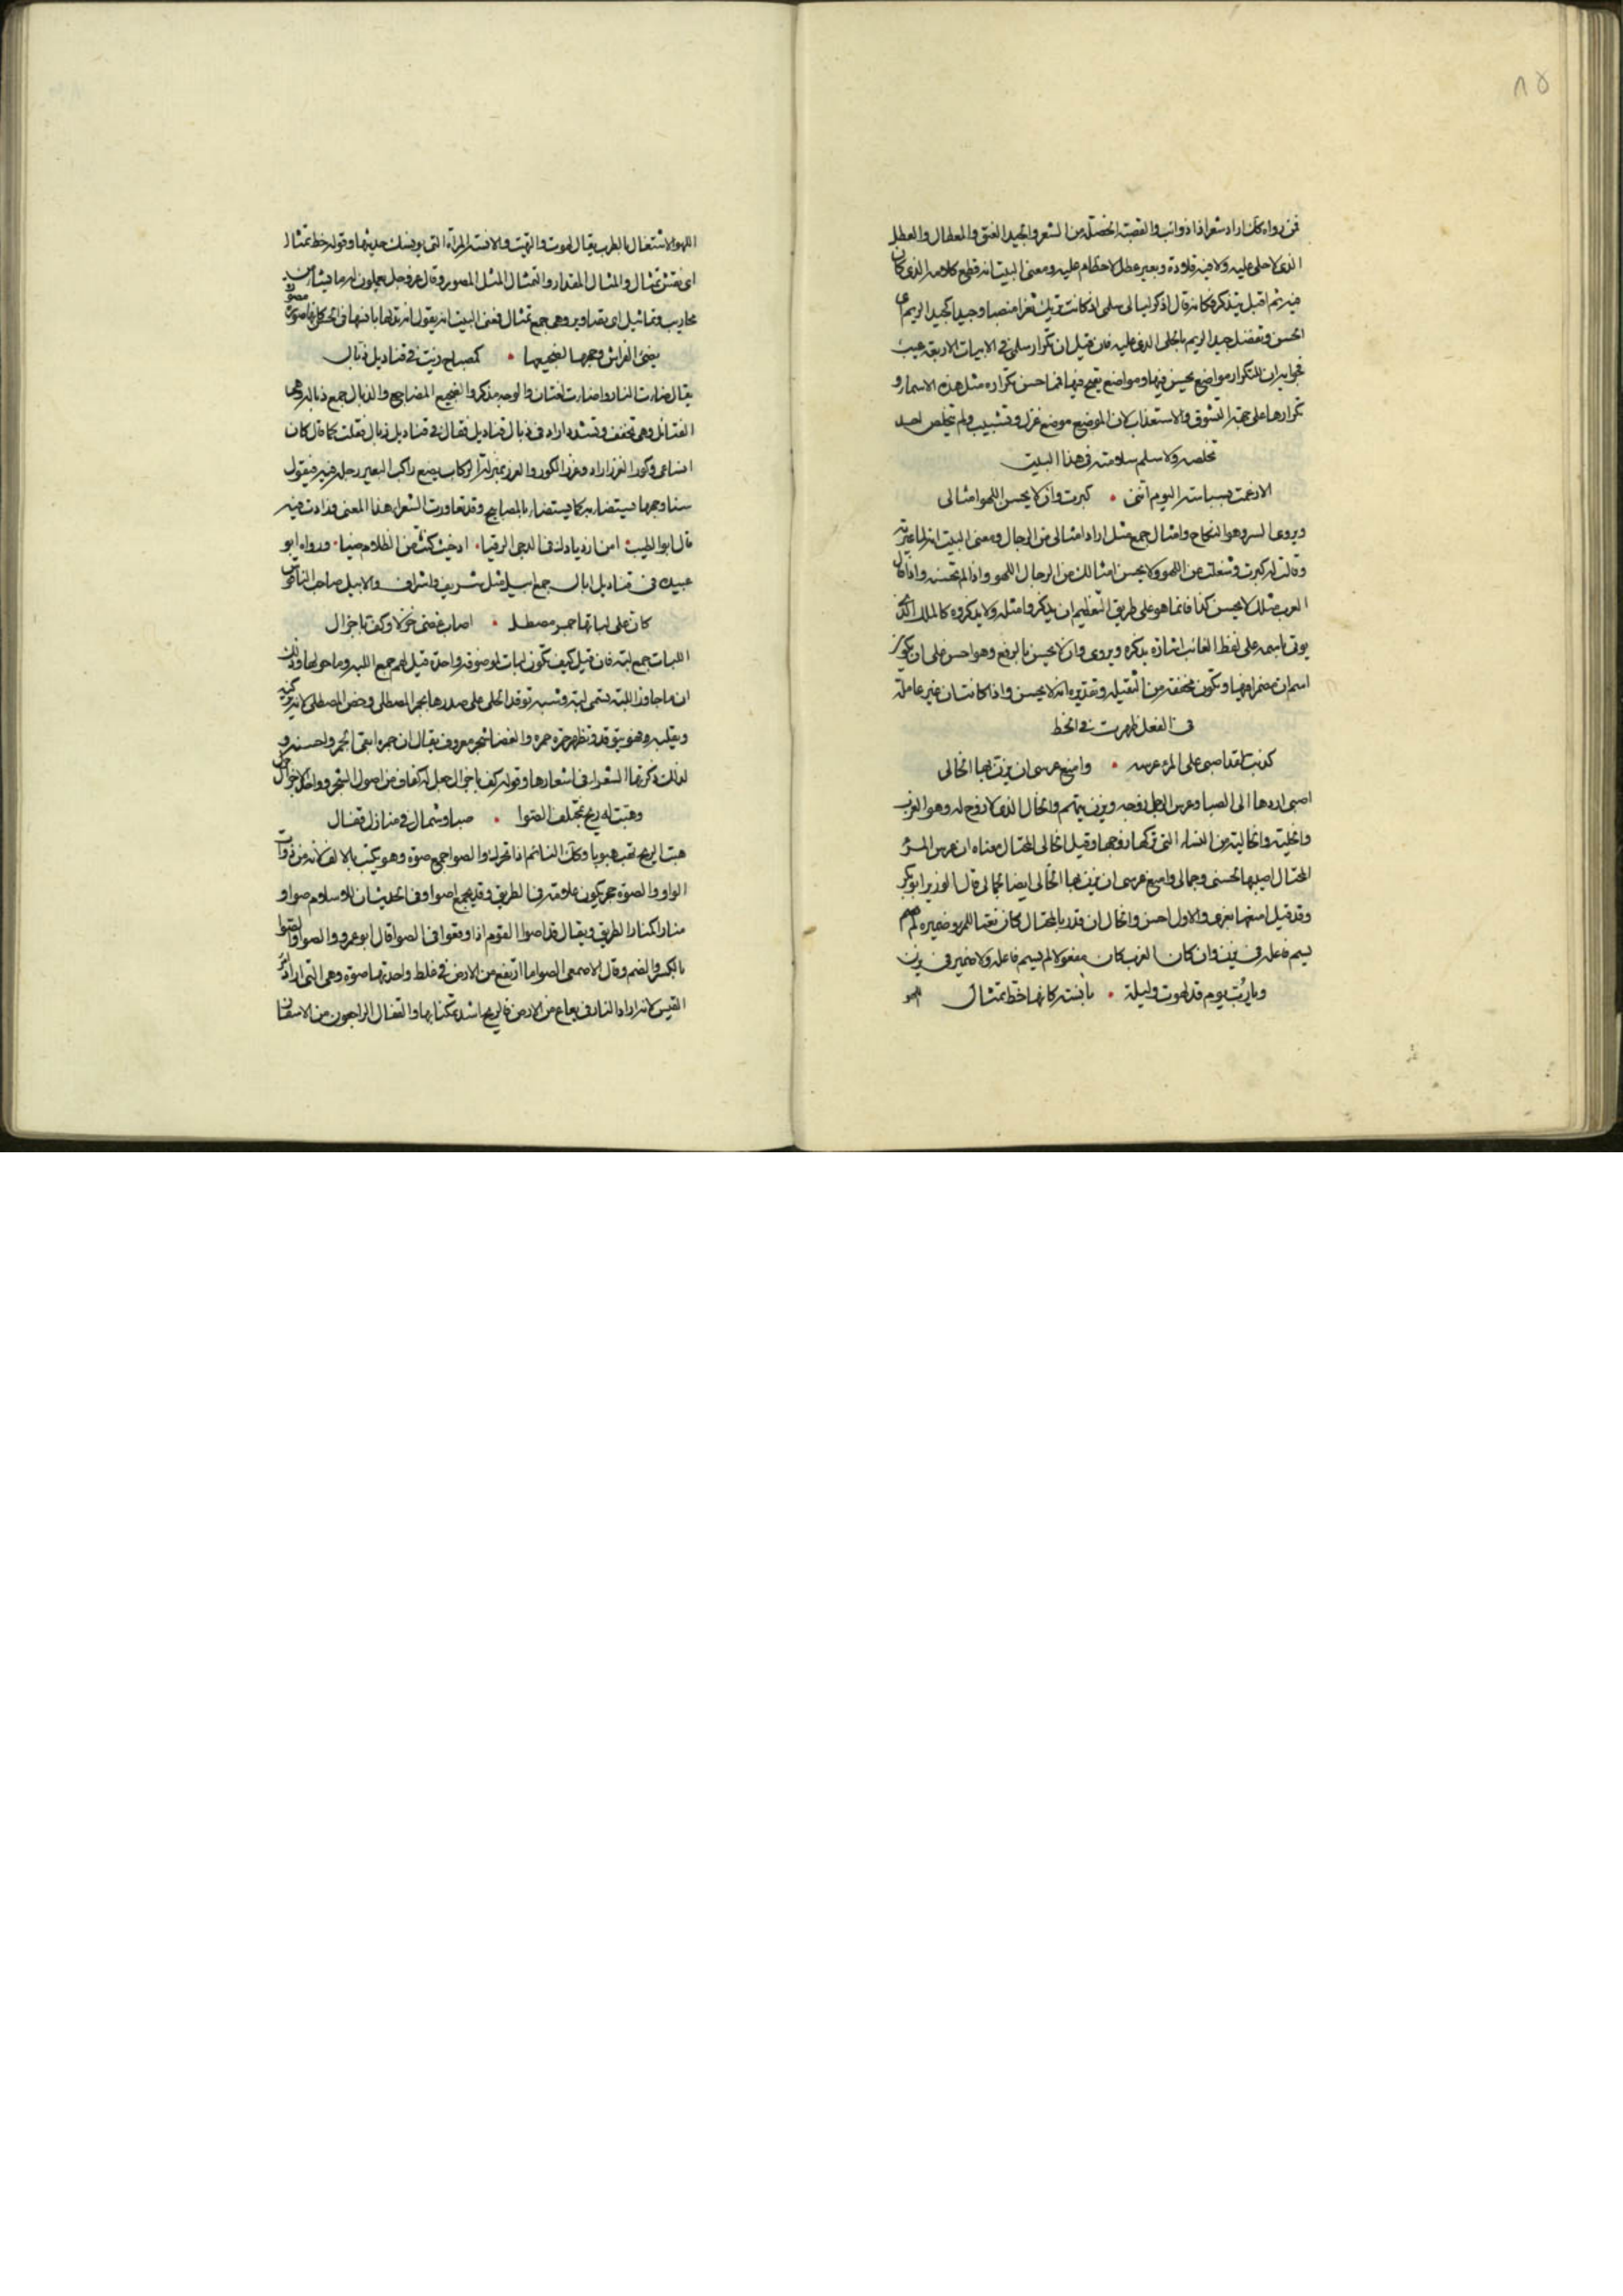 ٨٥
فمن رواه كذا اراد شعرا ذا ذوائب والقصبة الخصلة من الشعر والجيد العنق والمعطال والعطل
الذى لا حلى عليه ولا فيه قلادة وبعير عطل لا خطام عليه ومعنى البيت انه قطع كلامه الذى كان
فيه ثم اقبل يتذكر فكانه قال اذكر ليالى سلمى اذ كانت تريك ثغرا منصبا وجيدا كجيد الريم فى
الحسن وتفضل جيد الريم بالحلى الذى عليه فان قيل ان تكرار سلمى فى الابيات الاربعة عيب
فجوابه ان للتكرار مواضع يحسن فيها ومواضع يقبح فيها فما حسن تكراره مثل هذه الاسماء و
تكرارها على جهة التشوق والاستعذاب لان الموضع موضع غزل وتشبيب ولم يتخلص احد
تخلصه ولا سلم سلامته فى هذا البيت
الا زعمت بسباسة اليوم اننى • كبرت وان لا يحسن اللهو امثالى
ويروى السر وهو النكاح وامثال جمع مثل اراد امثالى من الرجال ومعنى البيت انها عيرته
وقالت له كبرت وشغلت عن اللهو ولا يحسن امثالك من الرجال اللهو واذا لم تحسنه واذا قال
العرب مثلك لا يحسن كذا فانما هو على طريق التعظيم ان يذكروا مثله ولا يذكروه كالملك الذى
يؤتى باسمه على لفظ الغائب اشارة بذكره ويروى وان لا يحسن بالرفع وهو احسن على ان يكون
اسم ان مضمرا فيها وتكون مخففة من الثقيلة وتقديره انه لا يحسن واذا كانت ان غير عاملة
فى الفعل ظهرت فى الخط
كذبت لقد اصبى على المرء عرسه • وامنع عرسى ان يزن بها الخالى
اصبى اردها الى الصبا وعرس الرجل زوجه ويزن يتهم والخال الذى لا زوج له وهو العزب
والخلية والخالية من النساء التى تركها زوجها وقيل الخالى المختال معناه ان عرس المرء
المختال اصبيها بحسنى وجمالى وامنع عرسى ان يزن بها الخالى ايضا لجمالى قال الوزير ابو بكر
وقد قيل امنعها بعزى والاول احسن والخال ان قدر بالمختال كان نعتا للمرء وضميره لم
يسم فاعله فى يزن وان كان العزب كان مفعولا لم يسم فاعله ولا ضمير فى يزن
ويا رب يوم قد لهوت وليلة • بآنسة كانها خط تمثال
اللهو
اللهو الاشتغال بالطرب يقال لهوت والتهيت والآنسة المرأة التى يؤنسك حديثها وقوله خط تمثال
اى نقش تمثال والمثال المقدار والتمثال المثل المصور وقال عز وجل يعملون له ما يشاء من
محاريب وتماثيل اى تصاوير وهى جمع تمثال فمعنى البيت انه يقول انه تلها بآنسة كانها صورة
يضىء الفراش وجهها لضجيعها • كمصباح زيت فى قناديل ذبال
يقال ضاءت النار واضاءت لغتان والوجه مذكر والضجيع المضاجع والذبال جمع ذبالة وهى
الفتائل وهى تخفف وتشدد اراد فى ذبال قناديل فقال فى قناديل ذبال فقلب كما قال كان
وكور الغرز اراد وغرز الكور والغرز بمنزلة الركاب يضع راكب البعير رجله فيه فيقول
سنا وجهها يستضاء به كما يستضاء بالمصابيح وقد تعاورت الشعراء هذا المعنى فزادت فيه
قال ابو الطيب • امن ازديارك فى الدجى الرقباء • اذ حيث كنت من الظلام ضياء • ورواه ابو
عبيدة فى قناديل ابال جمع ابيل مثل شريف واشراف والابيل صاحب الناقوس
كان على لباتها جمر مصطل • اصاب غضى جزلا وكف باجزال
اللبات جمع لبة فان قيل كيف تكون لبات لموصوفة واحدة قيل لهم جمع اللبة وما حولها وذلك
ان ما جاوز اللبة يسمى لبة وشبه توقد الحلى على صدرها بجمر المصطلى وخص المصطلى لانه يحركه
ويقلبه وهو يتوقد وتظهر حمره والغضا شجر معروف يقال ان جمره ابقى الجمر واحسنه و
لذلك ذكرته الشعراء فى اشعارها وقوله كف باجزال جعل له كفاف من اصول الشجر وواحد الاجزال جزل
وهبت له ريح بمختلف الصوا • صبا وشمال فى منازل قفال
هبت الريح تهب هبوبا وكذا النائم اذا تحرك والصوا جمع صوة وهو يكتب بالالف لانه من ذوات
الواو والصوة حجر يكون علامة فى الطريق وقد يجمع اصوا وفى الحديث ان للاسلام صوا و
منارا كمنار الطريق ويقال قد اصوا القوم اذا وقعوا فى الصوا قال ابو عمرو والصوا والصوا
بالكسر والضم وقال الاصمعى الصوا ما ارتفع من الارض فى غلظ واحدتها صوة وهى التى اراد امرؤ
القيس لانه اراد النار فى يفاع من الارض فالريح اشد تمكنا بها والقفال الراجعون من الاسفار